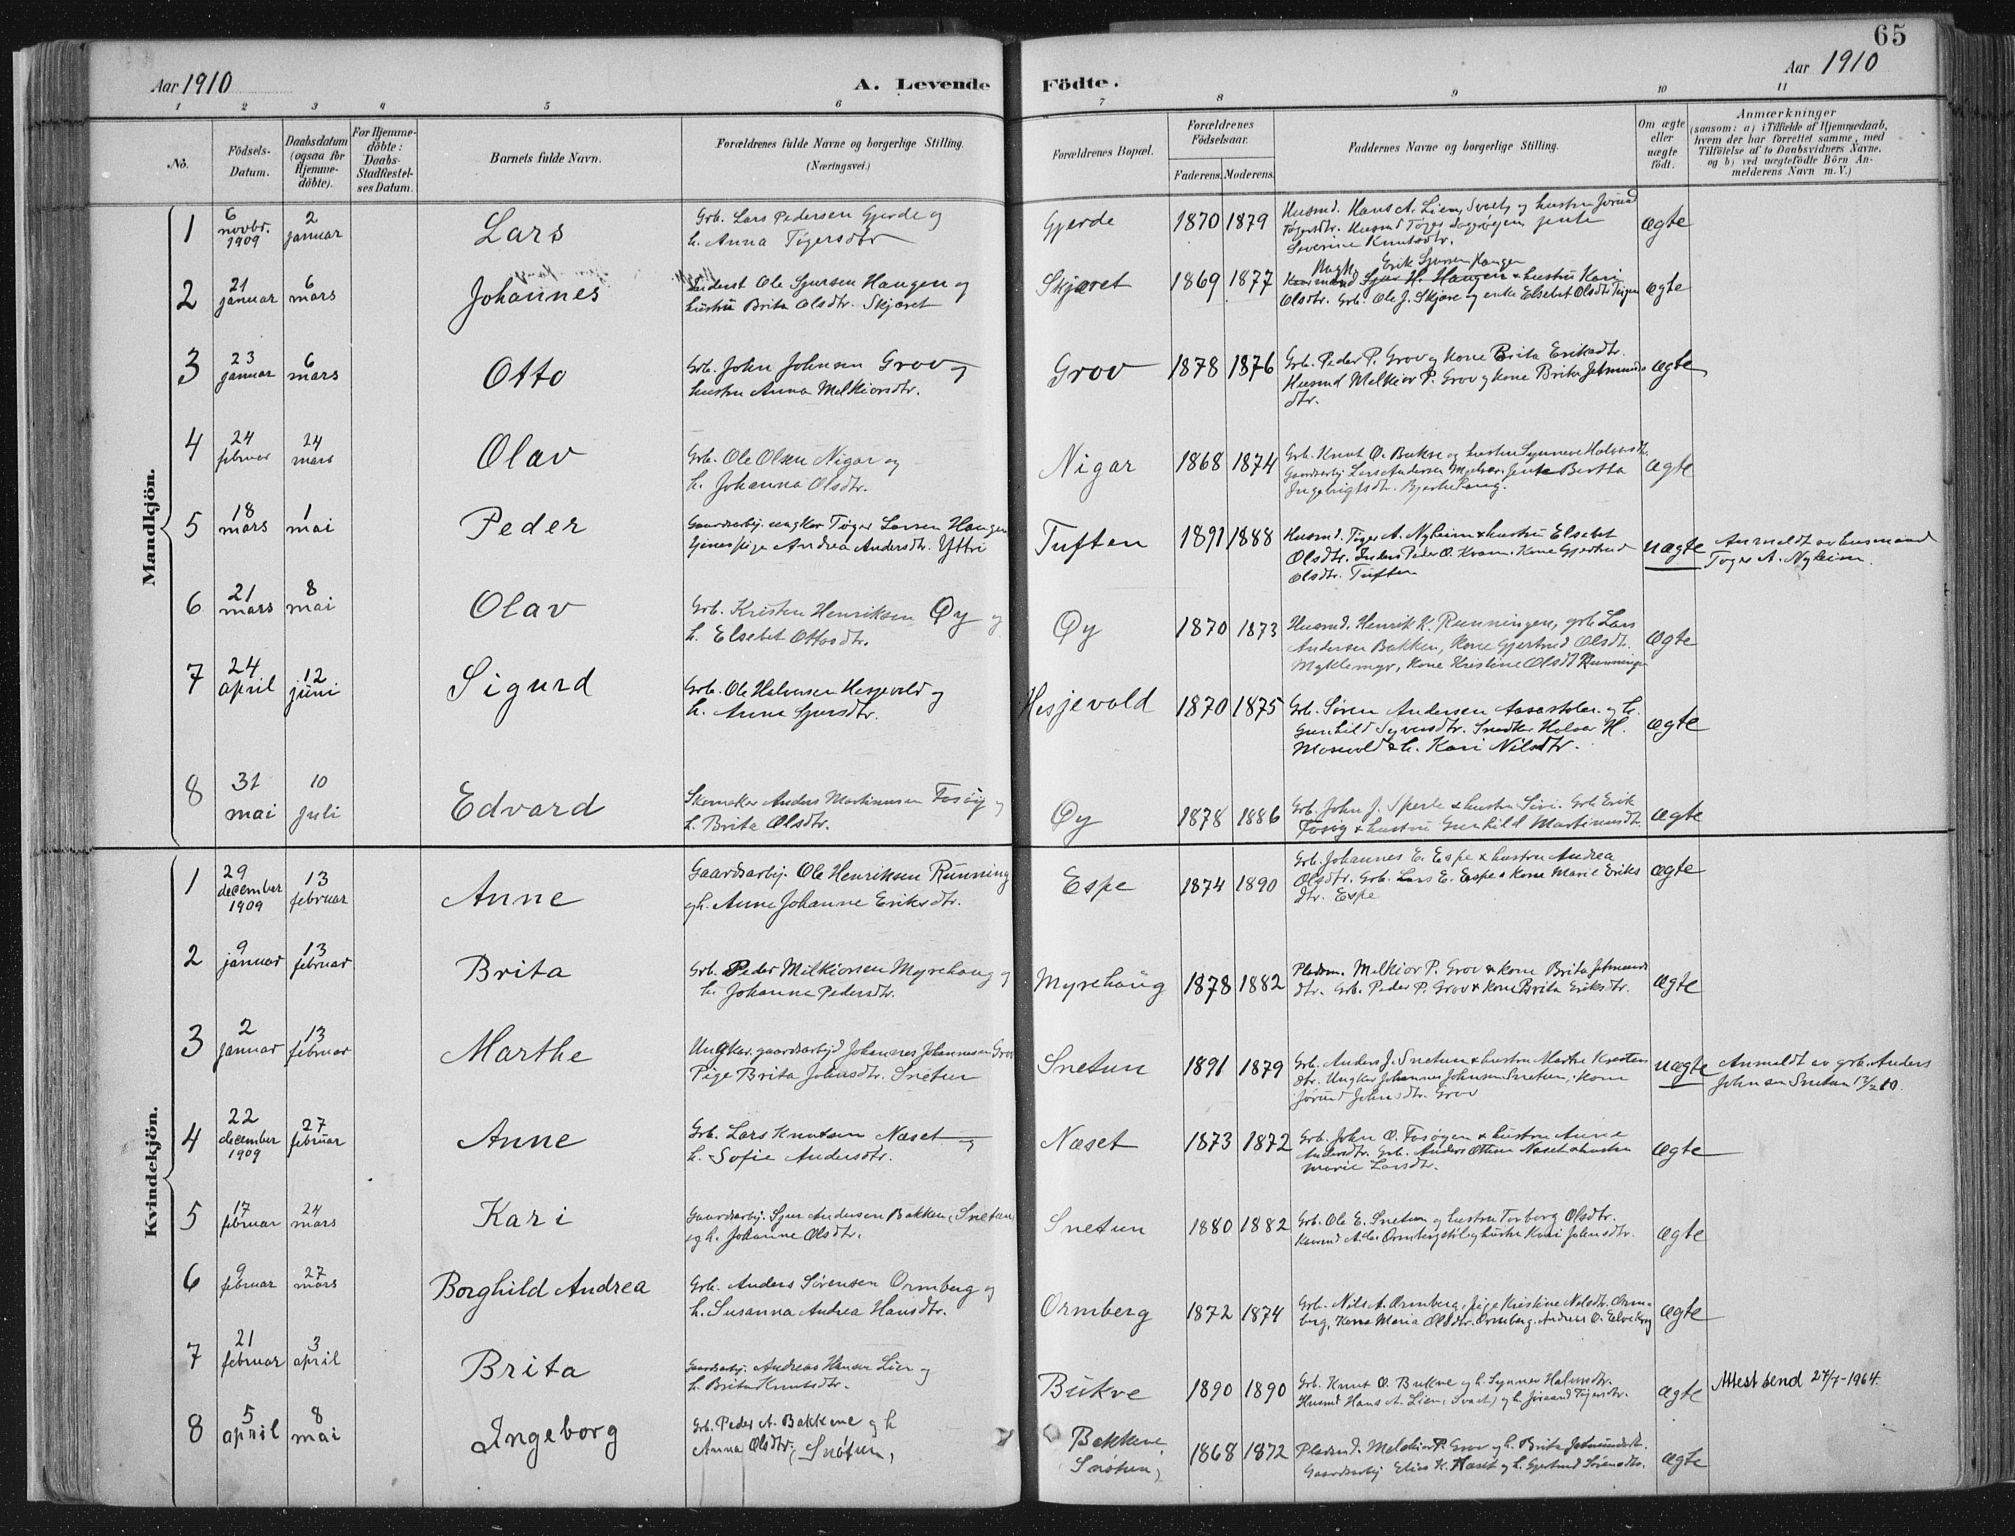 65
Aar 1910
A. Levende
Födte.
Aar 1910
1 2 3 4 5 6 7 8 9 10 11
No.
Födsels-
Datum.
Daabsdatum
(ogsaa for
Hjemme-
döbte).
For Hjemme-
döbte:
Daabs-
Stadfæstel-
ses Datum.
Barnets fulde Navn.
Forældrenes fulde Navne og borgerlige Stilling.
(Næringsvei.)
Forældrenes Bopæl.
Forældrenes
Födselsaar.
Faderens. Moderens.
Faddernes Navne og borgerlige Stilling.
Om ægte
eller
uægte
födt.
Anmærkninger
(saasom: a) i Tilfælde af Hjemmedaab,
hvem der har forrettet samme, med
Tilföielse af to Daabsvidners Navne,
og b) ved uægtefödte Börn An-
melderens Navn m. V.)
Mandkjön.
1
6
novbr.
1909
2
januar
Lars
Grb. Lars Pedersen Gjerde og
h. Anna Tøgersdtr
Gjerde
1870 1879
Husmd. Hans A. Lien, Svaet, og hustru Jørund
Tøgersdtr. Husmd Tøger pente
Severine Knutsdtr.
ægte
2
21
januar
6
mars
Johannes
Inderst Ole Sjursen Haugen og
hustru Brita Olsdtr. Skjæret
Skjæret
1869 1877
Erik Sjursen Haugen
Sjur H. Haugen & hustru Kari
Olsdtr. Grb. Ole J. Skjære og enke Elsebet Olsdtr
ægte
3
23
januar
6
mars
Otto
Grb. John Johnsen Grov og
hustru Anna Melkiorsdtr.
Grov
1878 1876
Grb. Peder P. Grov og kone Brita Eriksdtr.
Husmd Melkior P. Grov og kone Brita Jetmunds
dtr.
ægte
4
24
februar
24
mars
Olav
Grb. Ole Olsen Nigar og
h. Johanna Olsdtr.
Nigar
1868 1874
Grb. Knut O. Bukve og hustru Synneve Halvorsdtr.
Gaardsarbj. Lars Andersen jente Bertha
Ingebrigtsdtr.
ægte
5
18
mars
1
mai
Peder
Gaardsarbj. ungkar Tøger Larsen Haugen
tjenestpige Andrea Andersdtr. Yttri
Tuften
1891 1888
Husmd. Tøger A. Nyheim & hustru Elsebet
Olsdtr. Inders Peder O. Kvam. Kone Gjertrud
Olsdtr. Tuften
uægte
Anmeldt av husmand
Tøger A. Nyheim.
6
21
mars
8
mai
Olav
Grb. Kristen Henriksen Øy og
h. Elsebet Ottosdtr.
Øy
1870 1873
Husmd. Henrik K. Runningen, grb. Lars
Andersen Bakken, kone Gjertrud Olsdt.
Myklemyr, kone Kristine Olsdt Runninge
ægte
7
24
april
12
juni
Sigurd
Grb. Ole Halvorsen Hesjevold og
h. Anna Sjursdtr.
Hesjevold
1870 1875
Grb. Søren Andersen og h.
Gunhild Syversdtr. Snedker Halvor H.
Moevold & h. Kari Nilsdtr.
ægte
8
31
mai
10
juli
Edvard
Skomaker Anders Martinusen Fosøig og
h. Brita Olsdtr.
Øy
1878 1886
Grb. John J. Sperle & hustru Sivi. Grb. Erik
Fosøig & hustru Gunhild Martinusdtr.
ægte
Kvindekjön.
1
29
december
1909
13
februar
Anne
Gaardsarbj. Ole Henriksen Running
og h. Anne Johanne Eriksdtr.
Espe
1874 1890
Grb. Johannes E. Espe & hustru Andrea
Olsdtr. Grb. Lars E. Espe & kone Marie Eriks
dtr. Espe
ægte
2
9
januar
13
februar
Brita
Grb. Peder Melkiorsen Myrehaug og
h. Johanna Pedersdtr.
Myrehaug
1878 1882
Pladsm. Melkior P. Grov & kone Brita Jetmunds
dtr. Grb. Peder P. Grov & kone Brita Eriksdtr.
ægte
3
2
januar
13
februar
Marthe
Ungkar, gaardsarbjd Johannes Johannesen Grov
Pige Brita Johnsdtr. Snetun
Snetun
1891 1879
Grb. Anders J. Snetun & hustru Marta Kristen
dtr. Ungkar Johannes Johnsen Snetun, kone
Jørund Johnsdtr. Grov
uægte
Anmeldt av grb. Anders
Johnsen Snetun 13/2 10.
4
22
december
1909
27
februar
Anne
Grb. Lars Knutsen Næset og
h. Sofie Andersdtr.
Næset
1873 1872
Grb. John O. Fosøyen & hustru Anna
Andersdtr. Grb. Anders Ottesen Næset & hustru
Marie Larsdtr.
ægte
5
17
februar
24
mars
Kari
Gaardsarbj. Sjur Andersen Bakken, (Snetun)
og h. Johanne Olsdtr.
Snetun
1880 1882
Grb. Ole E. Snetun og hustru Torborg Olsdtr.
og hustru Kari Johnsdtr.
ægte
6
9
februar
27
mars
Borghild Andrea
Grb. Anders Sørensen Ormberg og
h. Susanna Andrea Hansdtr.
Ormberg
1872 1874
Grb. Nils A. Ormberg, pige Kristine Nilsdtr. Orm-
berg, kone Maria Olsdtr. Ormberg, Andreas O.
ægte
7
21
februar
3
april
Brita
Gaardsarbj. Andreas Hansen Lien og
h. Brita Knutsdtr.
Bukve
1890 1890
Grb. Knut O. Bukve og h. Synneve Halvorsdtr.
Husmd Hans A. Lien, (Svaet) og h. Jørand Tøgersdtr.
ægte
Attest send 27/7-1964.
8
5
april
8
mai
Ingeborg
Grb. Peder A. Bakkene og h
Anna Olsdtr, (Snøtun,
Bakkene,
Snøtun)
1868 1872
Pladsmd. Melchior P. Grov og h. Brita Jetmundsdtr.
Gaardsarbj Elias K. Næset og h. Gjertrud Sørensdtr.
ægte